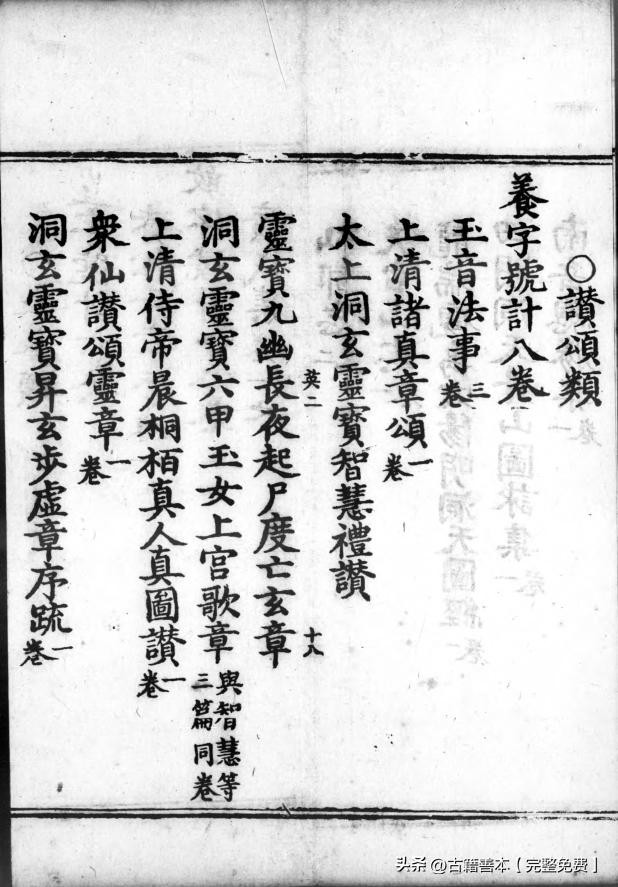 ○讃頌類
養字號計八卷
玉音法事三卷
上清諸真章頌一卷
太上洞玄靈寳智慧禮讃
靈寳九幽長夜起尸度亡玄章
英二
十八
洞玄靈寳六甲玉女上宫歌章與智慧等三篇同卷
上清侍帝晨桐栢真人真圖讃一卷
衆仙讃頌靈章一卷
洞玄靈寳昇玄步虛章序疏一卷
头条@古籍善本【完整免费】